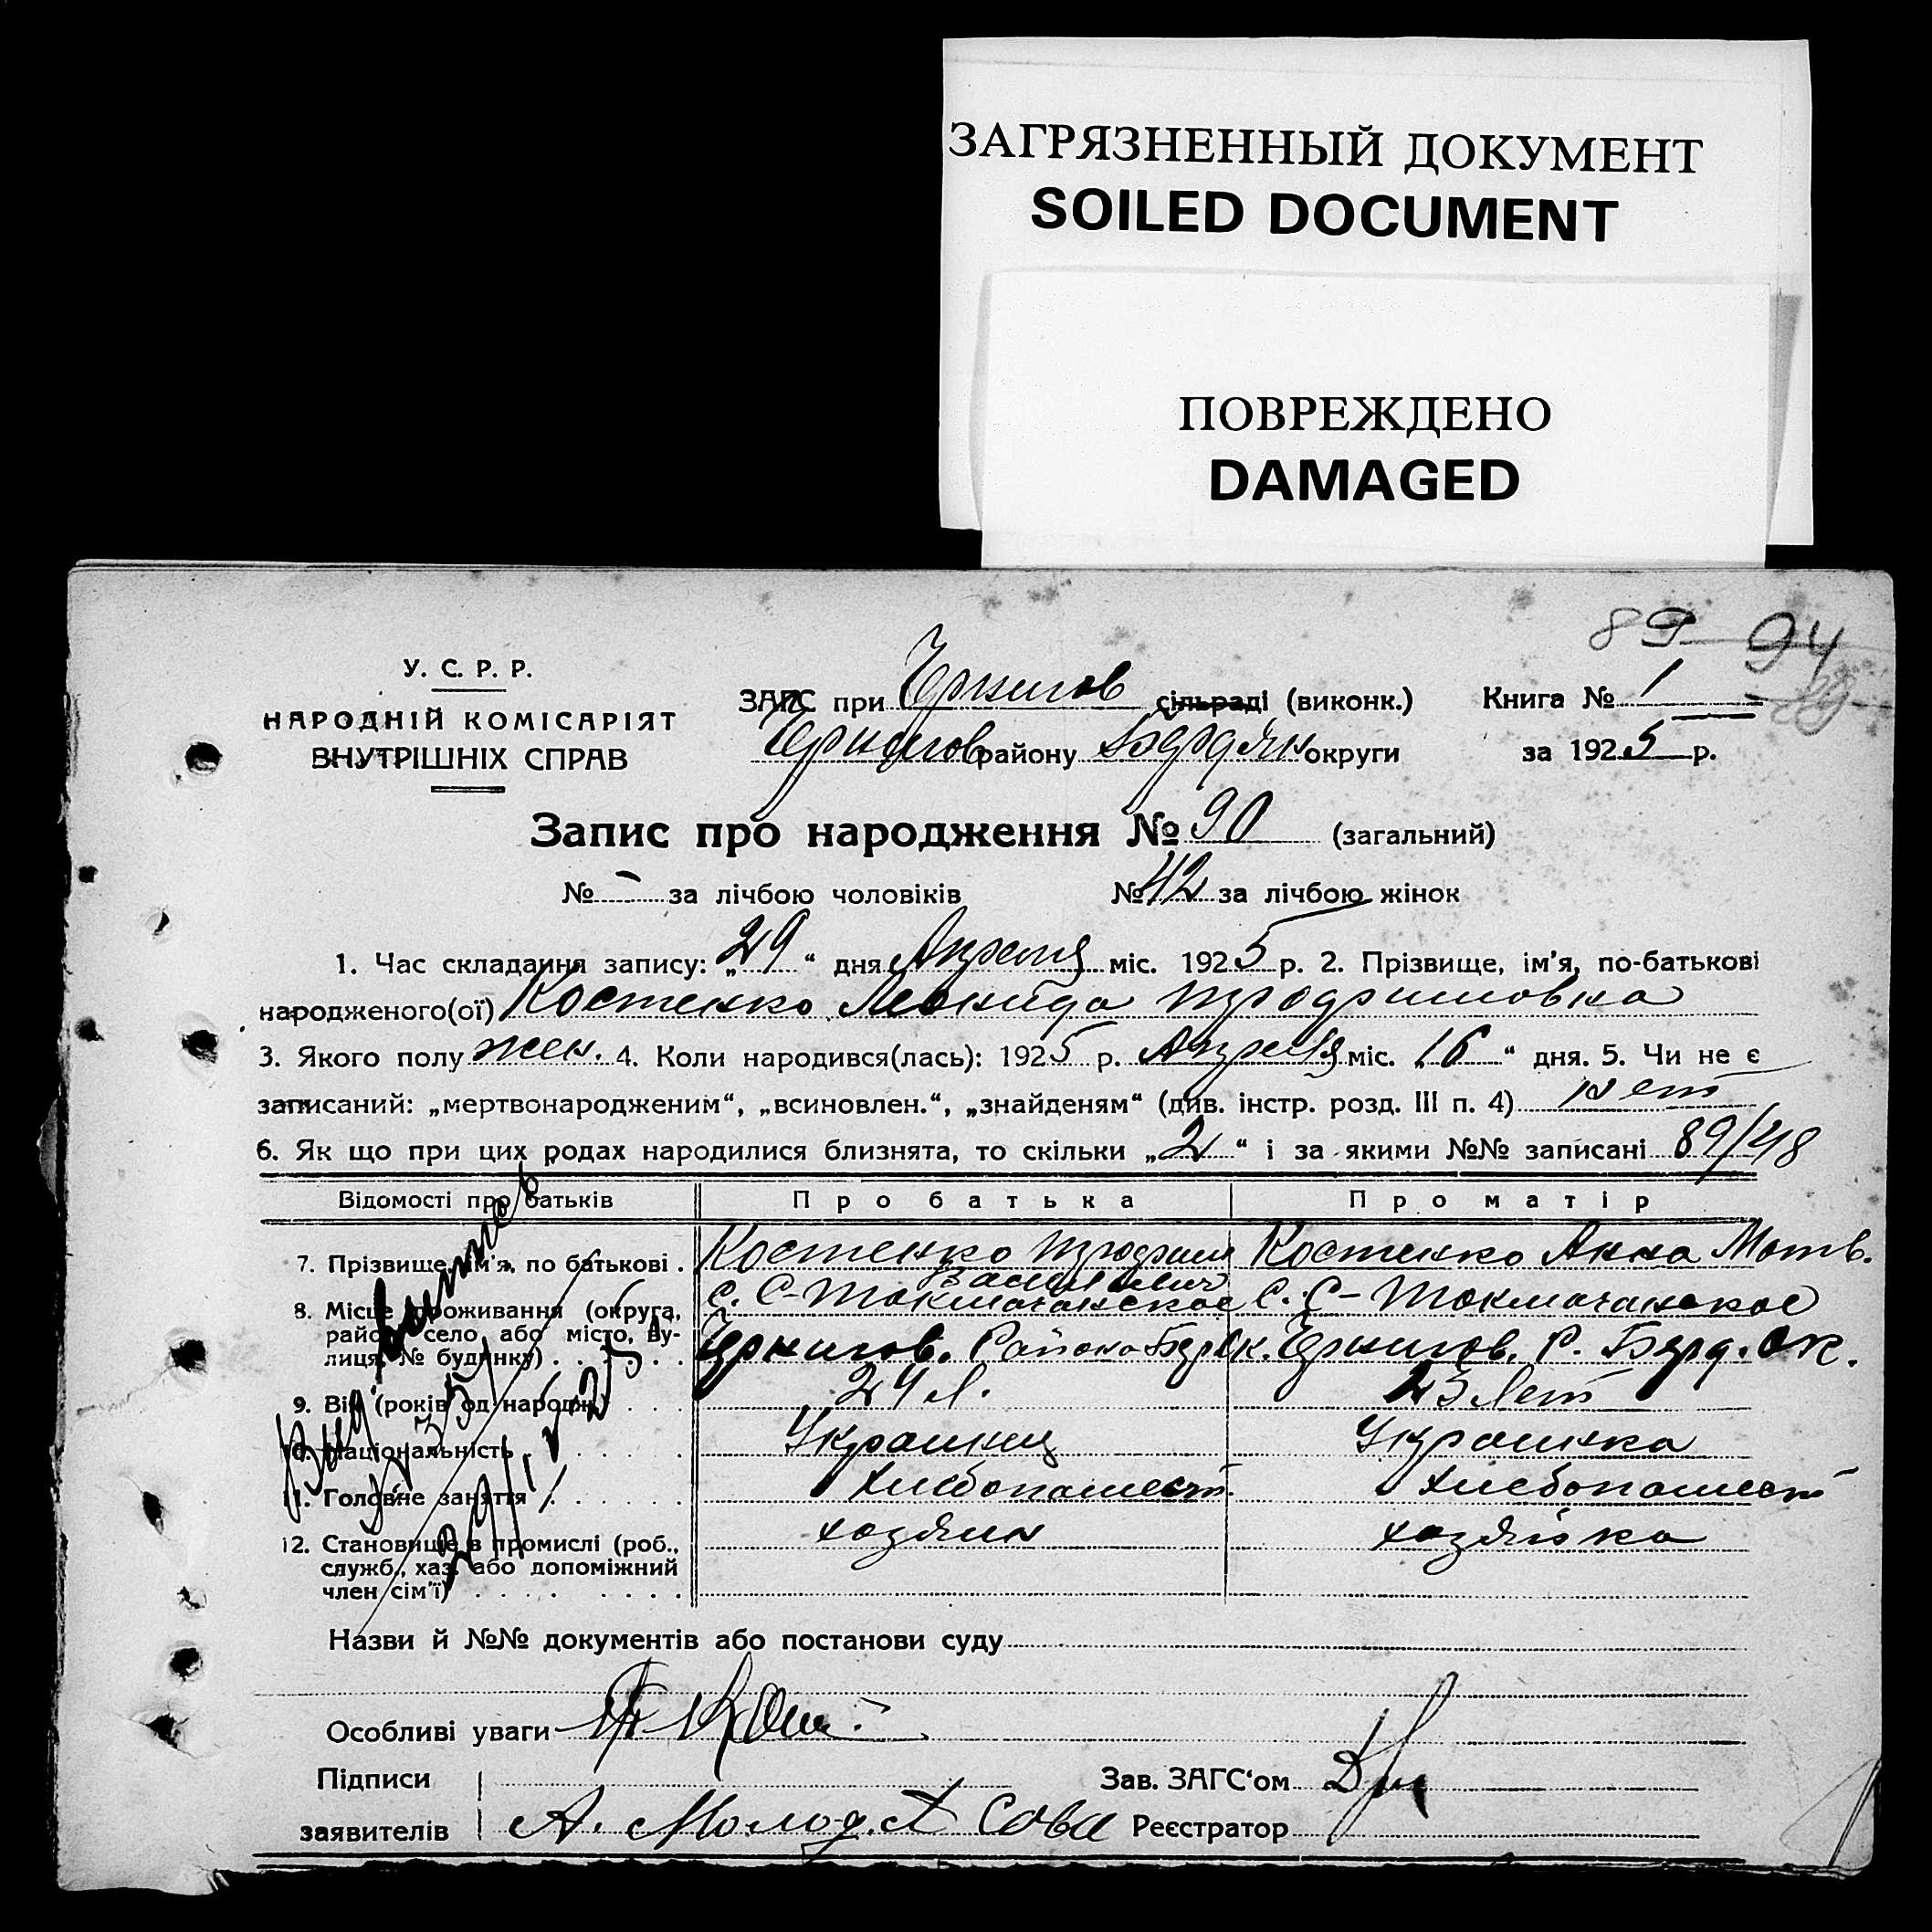 ЗАГРЯЗНЕННЫЙ ДОКУМЕНТ
SOILED DOCUMENT
ПОВРЕЖДЕНО
DAMAGED
89 94
У. С. Р. Р.
НАРОДНІЙ КОМІСАРІЯТ
ВНУТРІШНІХ СПРАВ
ЗАГС при Чернигов сільраді (виконк.) Книга № 1
Чернигов району Бердян округи за 1925 р.
Запис про народження № 90 (загальний)
№ - за лічбою чоловіків № 42 за лічбою жінок
1. Час складання запису: „29“ дня Апреля міс. 1925 р. 2. Прізвище, ім'я, по-батькові
народженого(ої) Костенко Леонида
3. Якого полу жен. 4. Коли народився(лась): 1925 р. Апреля міс. „16“ дня. 5. Чи не є
записаний: „мертвонародженим“, „всиновлен.“, „знайденям“ (див. інстр. розд. III п. 4) нет
6. Як що при цих родах народилися близнята, то скільки „2“ і за якими №№ записані 89/48
Відомості про батьків Про батька Про матір
7. Прізвище, ім'я, по батькові . Костенко Костенко Анна Матв.
Василиевич
8. Місце проживання (округа, с. С-Токмачанское с. С-Токмачанское
район, село або місто, ву-
лиця, № будинку) . . . . . Чернигов. Района Бер Ок. Чернигов. Р. Берд. Ок.
9. Вік (років од народж.) . . . 24 л. 23 Лет
10. Національність . . . . . Украинец Украинка
11. Головне заняття . . . . . . Хлебопашест. Хлебопашест
12. Становище в промислі (роб., хозяин хозяйка
служб., хаз. або допоміжний
член сім'ї) . . . . . . .
29/IV 25
Назви й №№ документів або постанови суду
Особливі уваги
Підписи Зав. ЗАГС‘ом
заявителів А. Молод. Сова Реєстратор